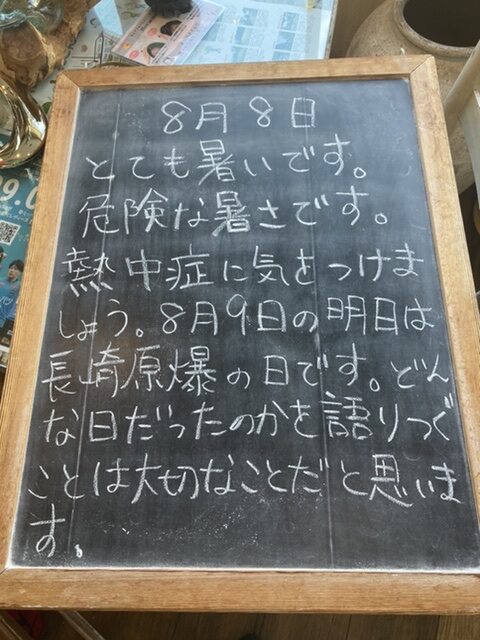 8月8日
とても暑いです。
危険な暑さです。
熱中症に気をつけま
しょう。8月9日の明日は
長崎原爆の日です。どん
な日だったのかを語りつぐ
ことは大切なことだと思いま
す.
9.0